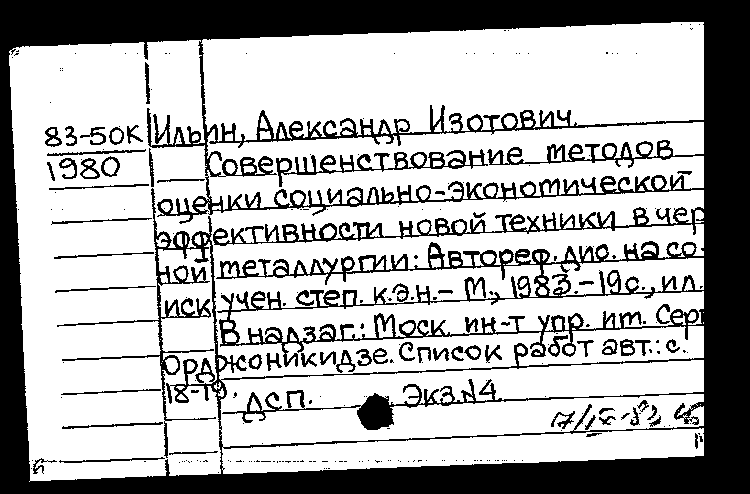 83-50К Ильин, Александр Изотович.
1980 Совершенствование методов
оценки социально-экономической
эффективности новой техники в чер
ной металлургии: Автореф. дис. на со-
иск. учен. степ. к.э.н.- М., 1983.-19с., ил.
В надзаг.: Моск. ин-т упр. им. Серг
Орджоникидзе. Список работ авт.: с.
18-19.
ДСП. Экз.№4.